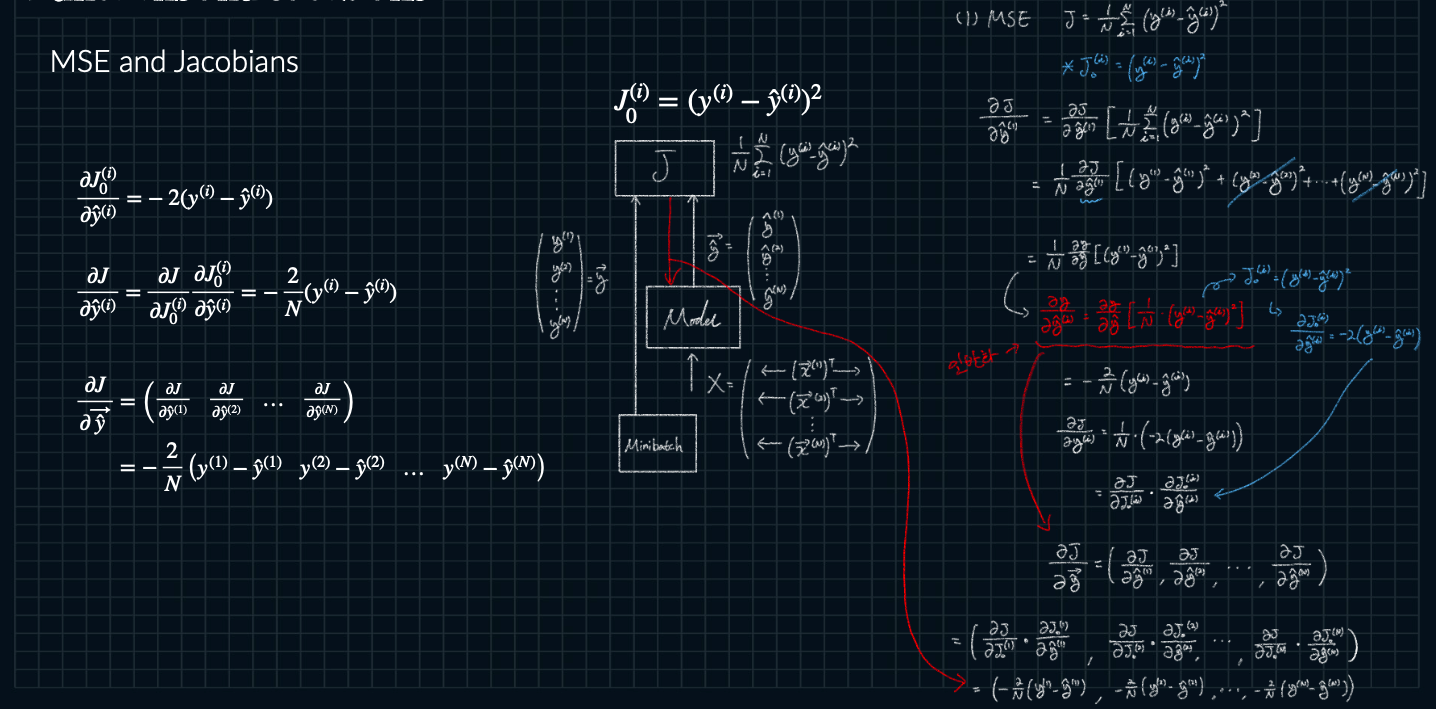 MSE and Jacobians
∂J₀⁽ⁱ⁾/∂ŷ⁽ⁱ⁾ = − 2(y⁽ⁱ⁾ − ŷ⁽ⁱ⁾)
∂J/∂ŷ⁽ⁱ⁾ = ∂J/∂J₀⁽ⁱ⁾ ∂J₀⁽ⁱ⁾/∂ŷ⁽ⁱ⁾ = − 2/N (y⁽ⁱ⁾ − ŷ⁽ⁱ⁾)
∂J/∂ŷ⃗ = (∂J/∂ŷ⁽¹⁾ ∂J/∂ŷ⁽²⁾ … ∂J/∂ŷ⁽ᴺ⁾)
= − 2/N (y⁽¹⁾ − ŷ⁽¹⁾ y⁽²⁾ − ŷ⁽²⁾ … y⁽ᴺ⁾ − ŷ⁽ᴺ⁾)
J₀⁽ⁱ⁾ = (y⁽ⁱ⁾ − ŷ⁽ⁱ⁾)²
J
1/N Σᵢ₌₁ᴺ (y⁽ⁱ⁾ − ŷ⁽ⁱ⁾)²
(y⁽¹⁾ y⁽²⁾ ⋮ y⁽ᴺ⁾) = y⃗
ŷ⃗ = (ŷ⁽¹⁾ ŷ⁽²⁾ ⋮ ŷ⁽ᴺ⁾)
Model
X = (← (x⃗⁽¹⁾)ᵀ → ← (x⃗⁽²⁾)ᵀ → ⋮ ← (x⃗⁽ᴺ⁾)ᵀ →)
Minibatch
(1) MSE J = 1/N Σᵢ₌₁ᴺ (y⁽ⁱ⁾ − ŷ⁽ⁱ⁾)²
* J₀⁽ⁱ⁾ = (y⁽ⁱ⁾ − ŷ⁽ⁱ⁾)²
∂J/∂ŷ⁽¹⁾ = ∂J/∂ŷ⁽¹⁾ [1/N Σᵢ₌₁ᴺ (y⁽ⁱ⁾ − ŷ⁽ⁱ⁾)²]
= 1/N ∂J/∂ŷ⁽¹⁾ [(y⁽¹⁾ − ŷ⁽¹⁾)² + (y⁽²⁾ − ŷ⁽²⁾)² + ⋯ + (y⁽ᴺ⁾ − ŷ⁽ᴺ⁾)²]
= 1/N ∂J/∂ŷ [(y⁽¹⁾ − ŷ⁽¹⁾)²]
J₀⁽ⁱ⁾ = (y⁽ⁱ⁾ − ŷ⁽ⁱ⁾)²
∂J/∂ŷ⁽ⁱ⁾ = ∂J/∂ŷ [1/N · (y⁽ⁱ⁾ − ŷ⁽ⁱ⁾)²]
∂J₀⁽ⁱ⁾/∂ŷ⁽ⁱ⁾ = −2(y⁽ⁱ⁾ − ŷ⁽ⁱ⁾)
일반화
= − 2/N (y⁽ⁱ⁾ − ŷ⁽ⁱ⁾)
∂J/∂y⁽ⁱ⁾ = 1/N · (−2(y⁽ⁱ⁾ − ŷ⁽ⁱ⁾))
= ∂J/∂J₀⁽ⁱ⁾ · ∂J₀⁽ⁱ⁾/∂ŷ⁽ⁱ⁾
∂J/∂ŷ⃗ = (∂J/∂ŷ⁽¹⁾, ∂J/∂ŷ⁽²⁾, ⋯, ∂J/∂ŷ⁽ᴺ⁾)
= (∂J/∂J₀⁽¹⁾ · ∂J₀⁽¹⁾/∂ŷ⁽¹⁾, ∂J/∂J₀⁽²⁾ · ∂J₀⁽²⁾/∂ŷ⁽²⁾, ⋯, ∂J/∂J₀⁽ᴺ⁾ · ∂J₀⁽ᴺ⁾/∂ŷ⁽ᴺ⁾)
= (−2/N (y⁽¹⁾ − ŷ⁽¹⁾), −2/N (y⁽²⁾ − ŷ⁽²⁾), ⋯, −2/N (y⁽ᴺ⁾ − ŷ⁽ᴺ⁾))